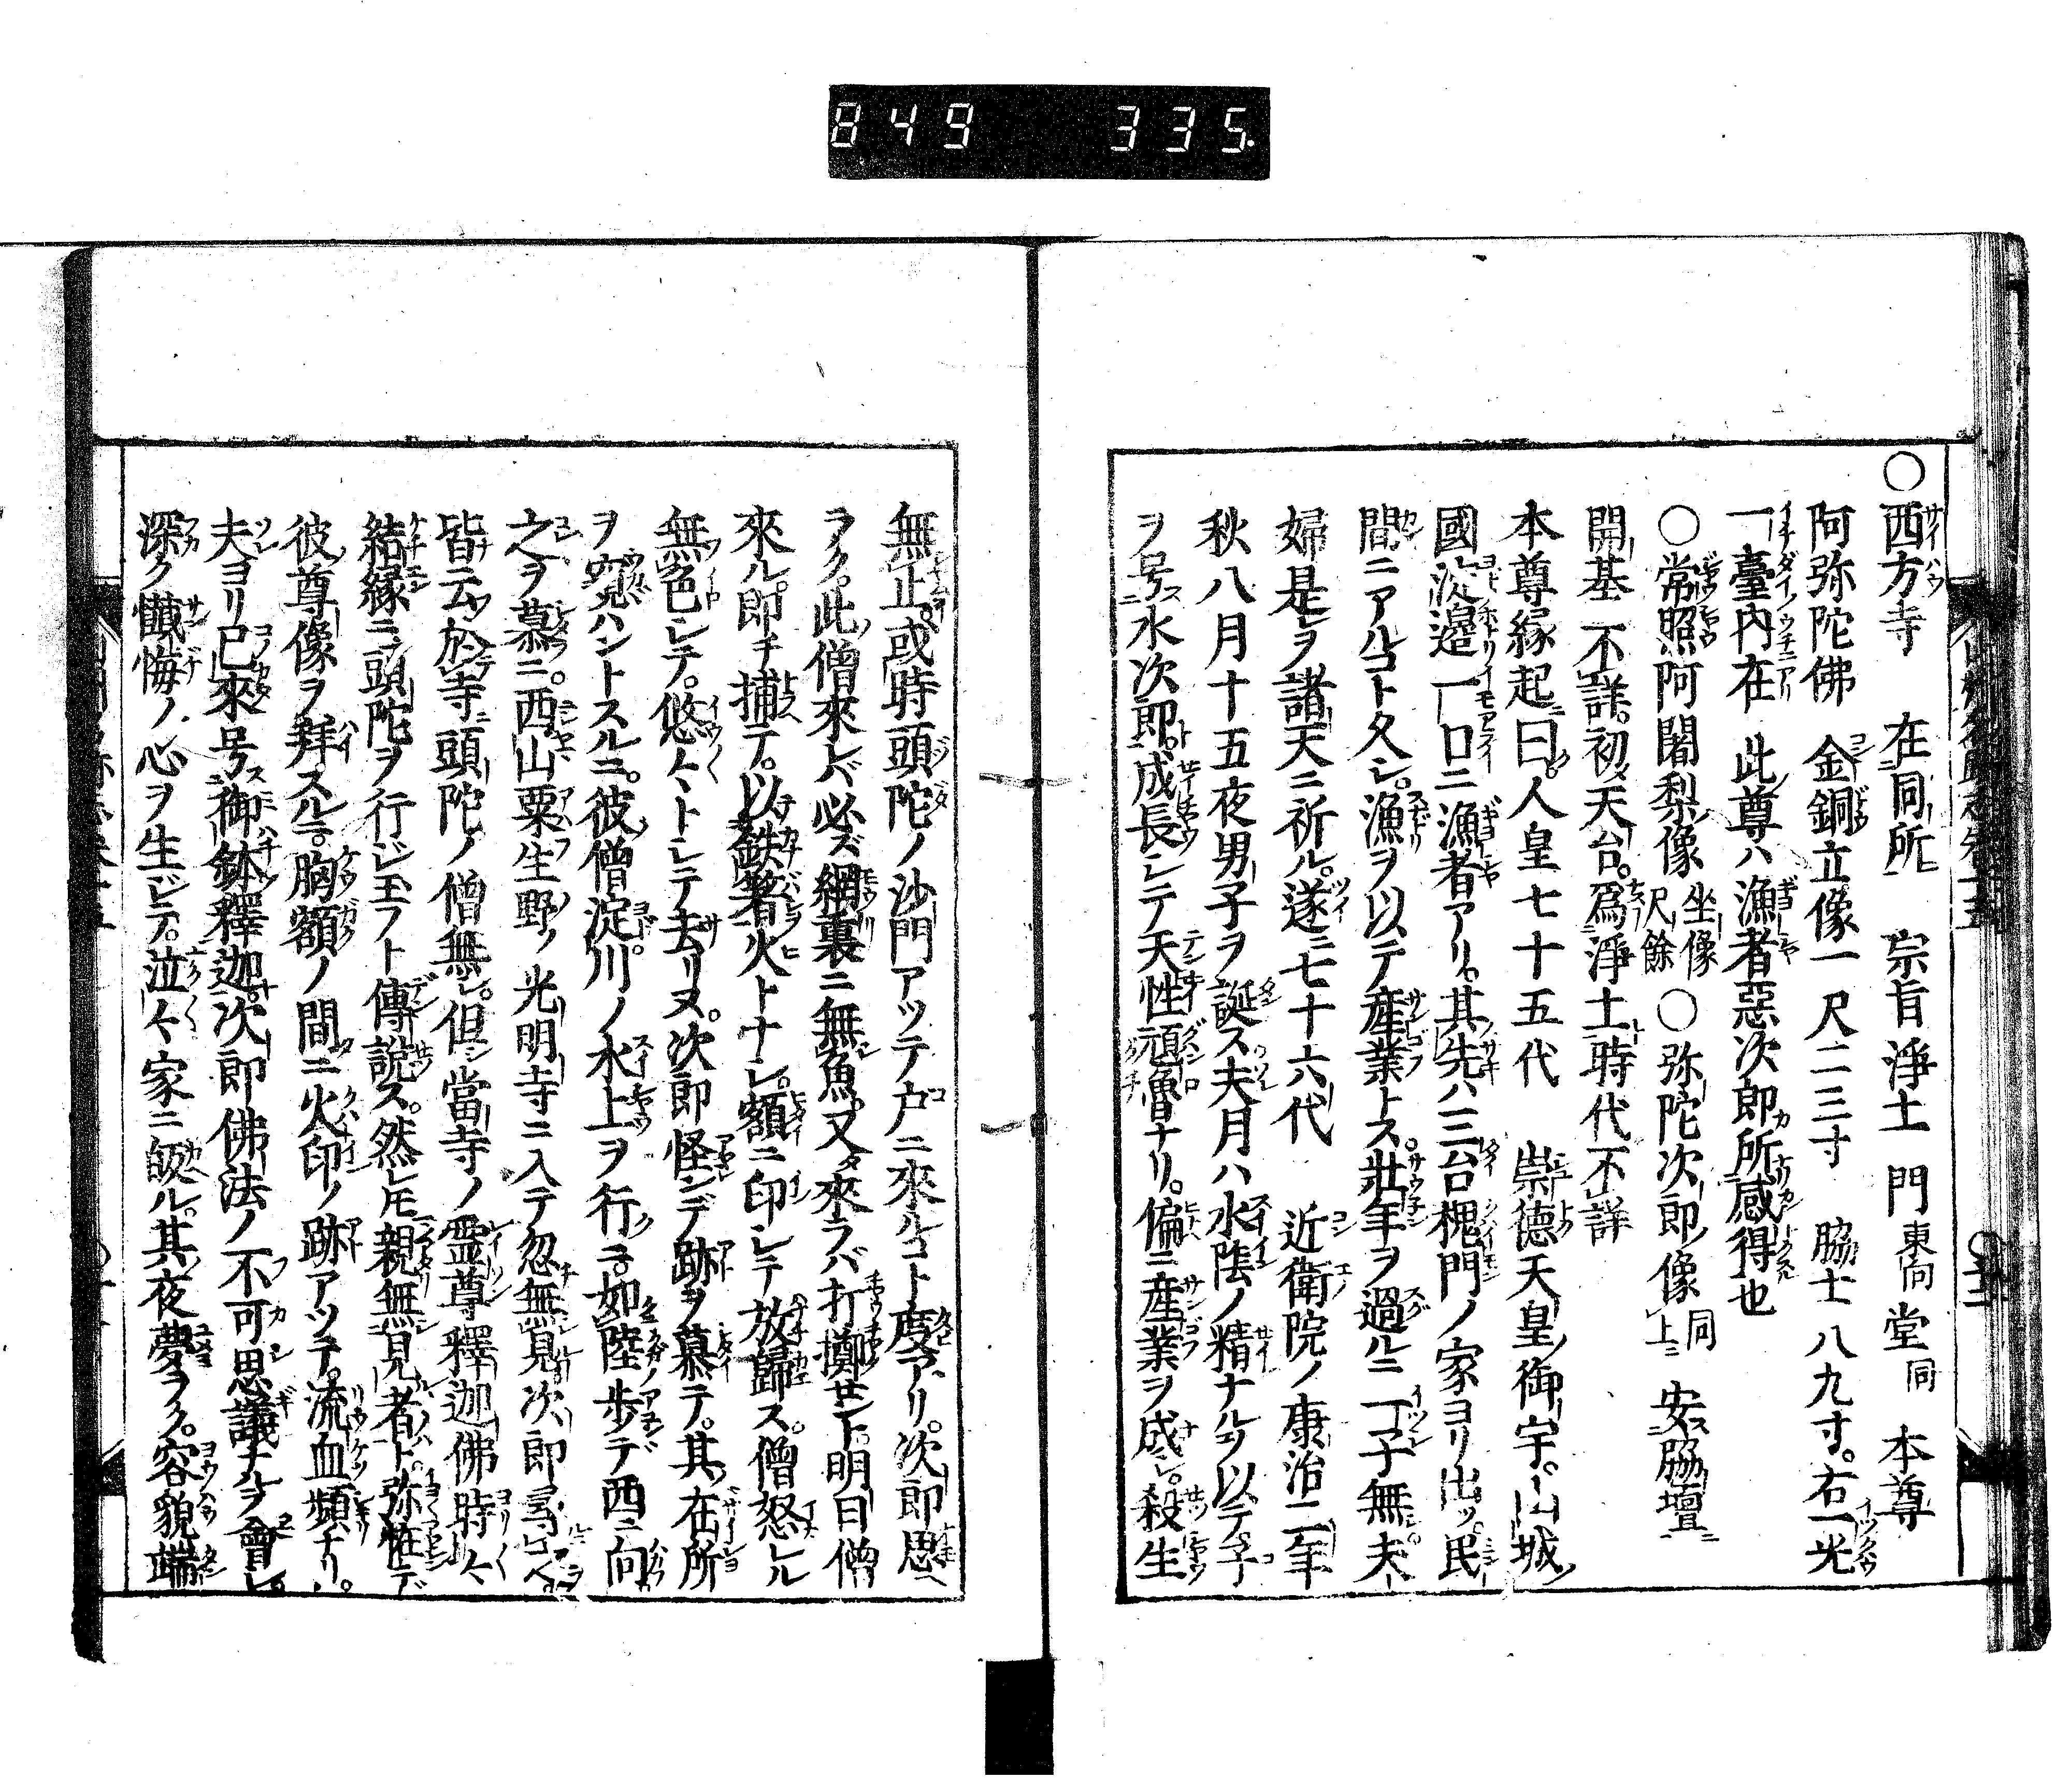 849 335.
○西方寺 在同所 宗旨淨土 門東向堂同 本尊
阿弥陀佛 金銅立像一尺二三寸 脇士八九寸。右一光
一臺内在 此尊ハ漁者惡次郎所感得也
○常照阿闍梨像坐像尺餘○弥陀次郎像同上 安脇壇
開基不詳。初天台。爲淨土時代不詳
本尊縁起曰。人皇七十五代 崇德天皇御宇。山城
國淀邊一口ニ漁者アリ。其先ハ三台槐門ノ家ヨリ出ツ。民
間ニアルコト久シ。漁ヲ以テ産業トス。壯年ヲ過ルニ一子無。夫
婦是ヲ諸天ニ祈ル。遂ニ七十六代 近衛院ノ康治二年
秋八月十五夜男子ヲ誕ス夫月ハ水陰ノ精ナルヲ以テ子
ヲ号水次郎。成長シテ天性頑魯ナリ。偏ニ産業ヲ成シ。殺生
無止。或時頭陀ノ沙門アツテ戸ニ來ルコト度アリ。次郎思
ラク。此僧來レバ必ズ網裏ニ無魚。又來ラバ打擲セント。明日僧
來ル。即チ捕テ。以鉄著火トナシ。額ニ印シテ放歸ス。僧怒ル
無色シテ。悠々トシテ去リヌ。次郎怪ンデ跡ヲ慕テ。其在所
ヲ窺ハントスルニ。彼僧淀川ノ水上ヲ行コ。如陸歩デ西ニ向
之ヲ慕ニ。西山粟生野ノ光明寺ニ入テ忽無見次郎
皆云於寺頭陀ノ僧無シ。但當寺ノ霊尊釋迦佛時々
結縁ニ頭陀ヲ行ジ玉フト傳説ス。然レ𪜈親無見者ト。弥怪デ
彼尊像ヲ拜スルニ。胸額ノ間ニ火印ノ跡アツテ。流血頻ナリ。
夫ヨリ已來号御鉢釋迦。次郎佛法ノ不可思議ナルヲ會シ。
深ク懺悔ノ心ヲ生ジテ。泣々家ニ皈ル。其夜夢ラク。容貌端